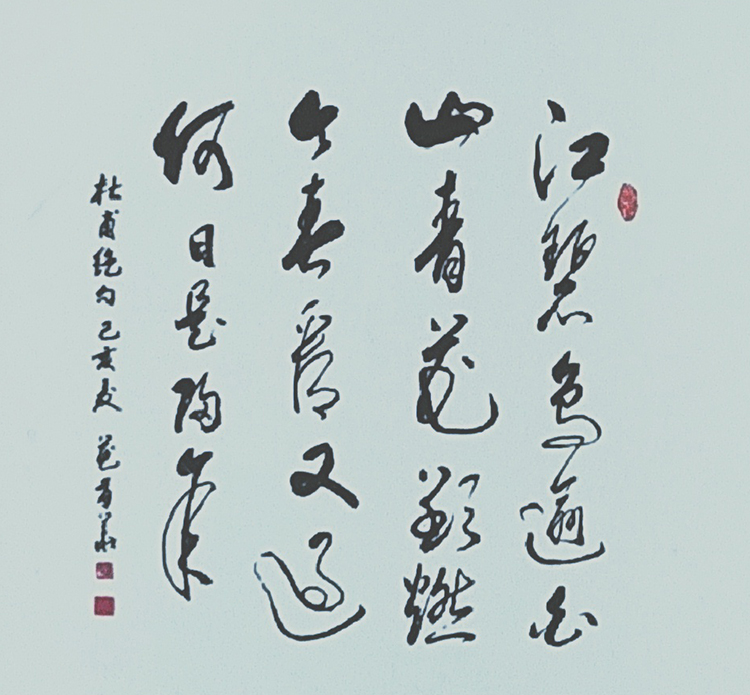 江碧鸟逾白
山青花欲燃
今春看又过
何日是归年
杜甫绝句己亥夏